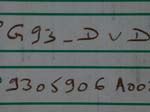 °G93_DVD
°9305906A00